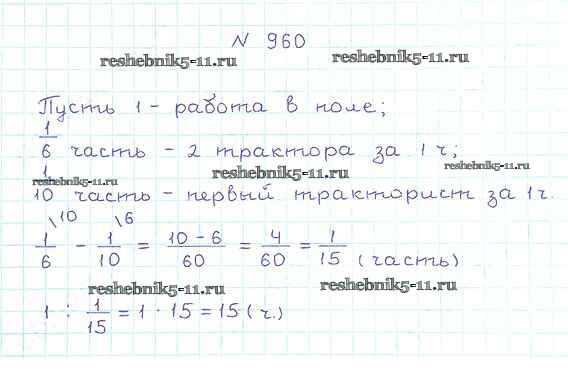 N 960
reshebnik5-11.ru reshebnik5-11.ru
Пусть 1 - работа в поле;
1/6 часть - 2 трактора за 1 ч;
reshebnik5-11.ru reshebnik5-11.ru
1/10 часть - первый тракторист за 1ч.
1/6 \10 - 1/10 \6 = 10 - 6/60 = 4/60 = 1/15 (часть)
reshebnik5-11.ru reshebnik5-11.ru
1 : 1/15 = 1 · 15 = 15 (ч.)